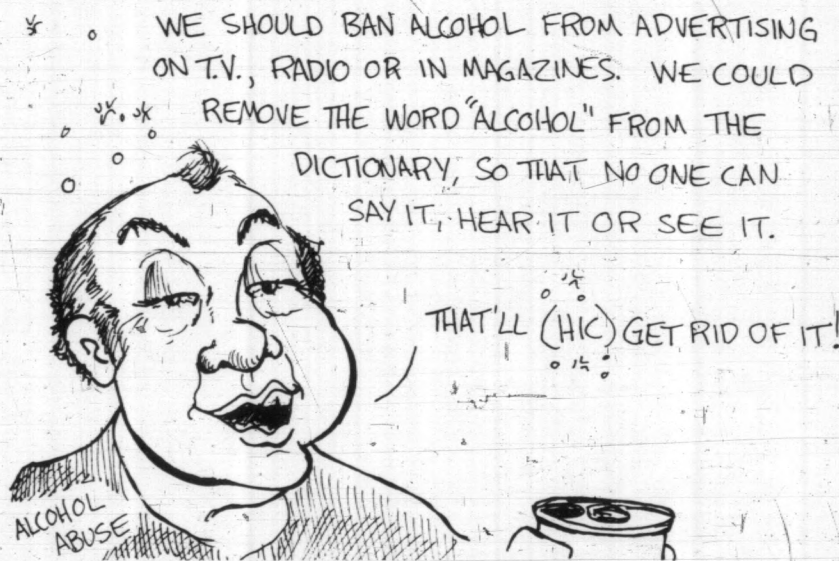 WE SHOULD BAN ALCOHOL FROM ADVERTISING
ON T.V., RADIO OR IN MAGAZINES. WE COULD
REMOVE THE WORD "ALCOHOL" FROM THE
DICTIONARY, SO THAT NO ONE CAN
SAY IT, HEAR IT OR SEE IT.
THAT'LL (HIC) GET RID OF IT!
ALCOHOL
ABUSE